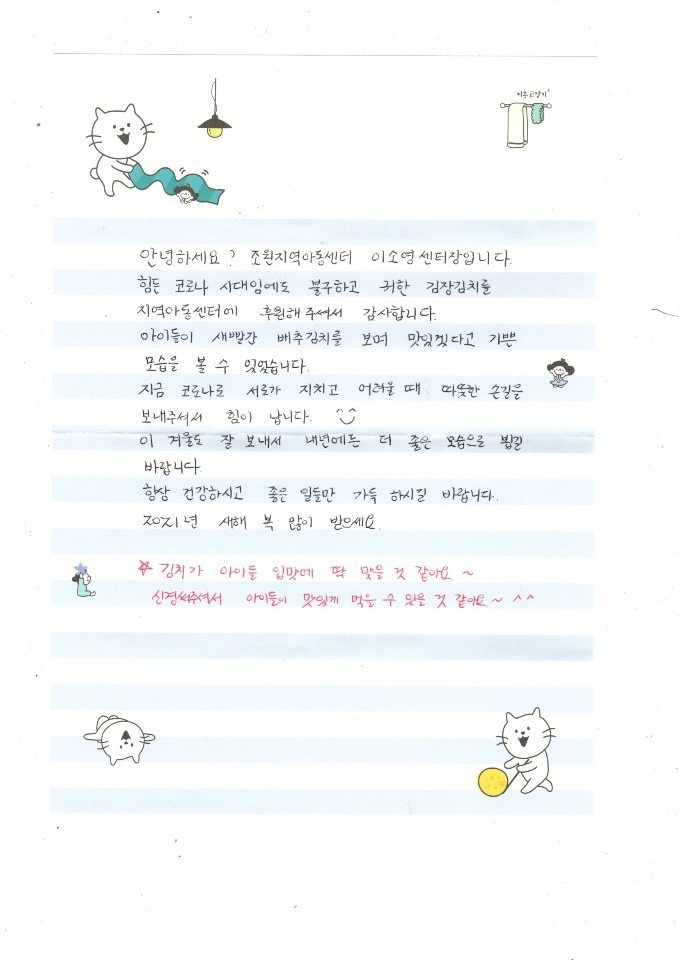 이주고양이°
안녕하세요? 조원지역아동센터 이소영센터장입니다.
힘든 코로나 시대임에도 불구하고 귀한 김장김치를
지역아동센터에 후원해주셔서 감사합니다.
아이들이 새빨간 배추김치를 보며 맛있겠다고 기쁜
모습을 볼 수 있었습니다.
지금 코로나로 서로가 지치고 어려울 때 따뜻한 손길을
보내주셔서 힘이 납니다.
이 겨울도 잘 보내서 내년에는 더 좋은 모습으로 뵙길
바랍니다.
항상 건강하시고 좋은 일들만 가득 하시길 바랍니다.
2021년 새해 복 많이 받으세요.
☆ 김치가 아이들 입맛에 딱 맞을 것 같아요~
신경써주셔서 아이들이 맛있게 먹을 수 있을 것 같아요~ ^^